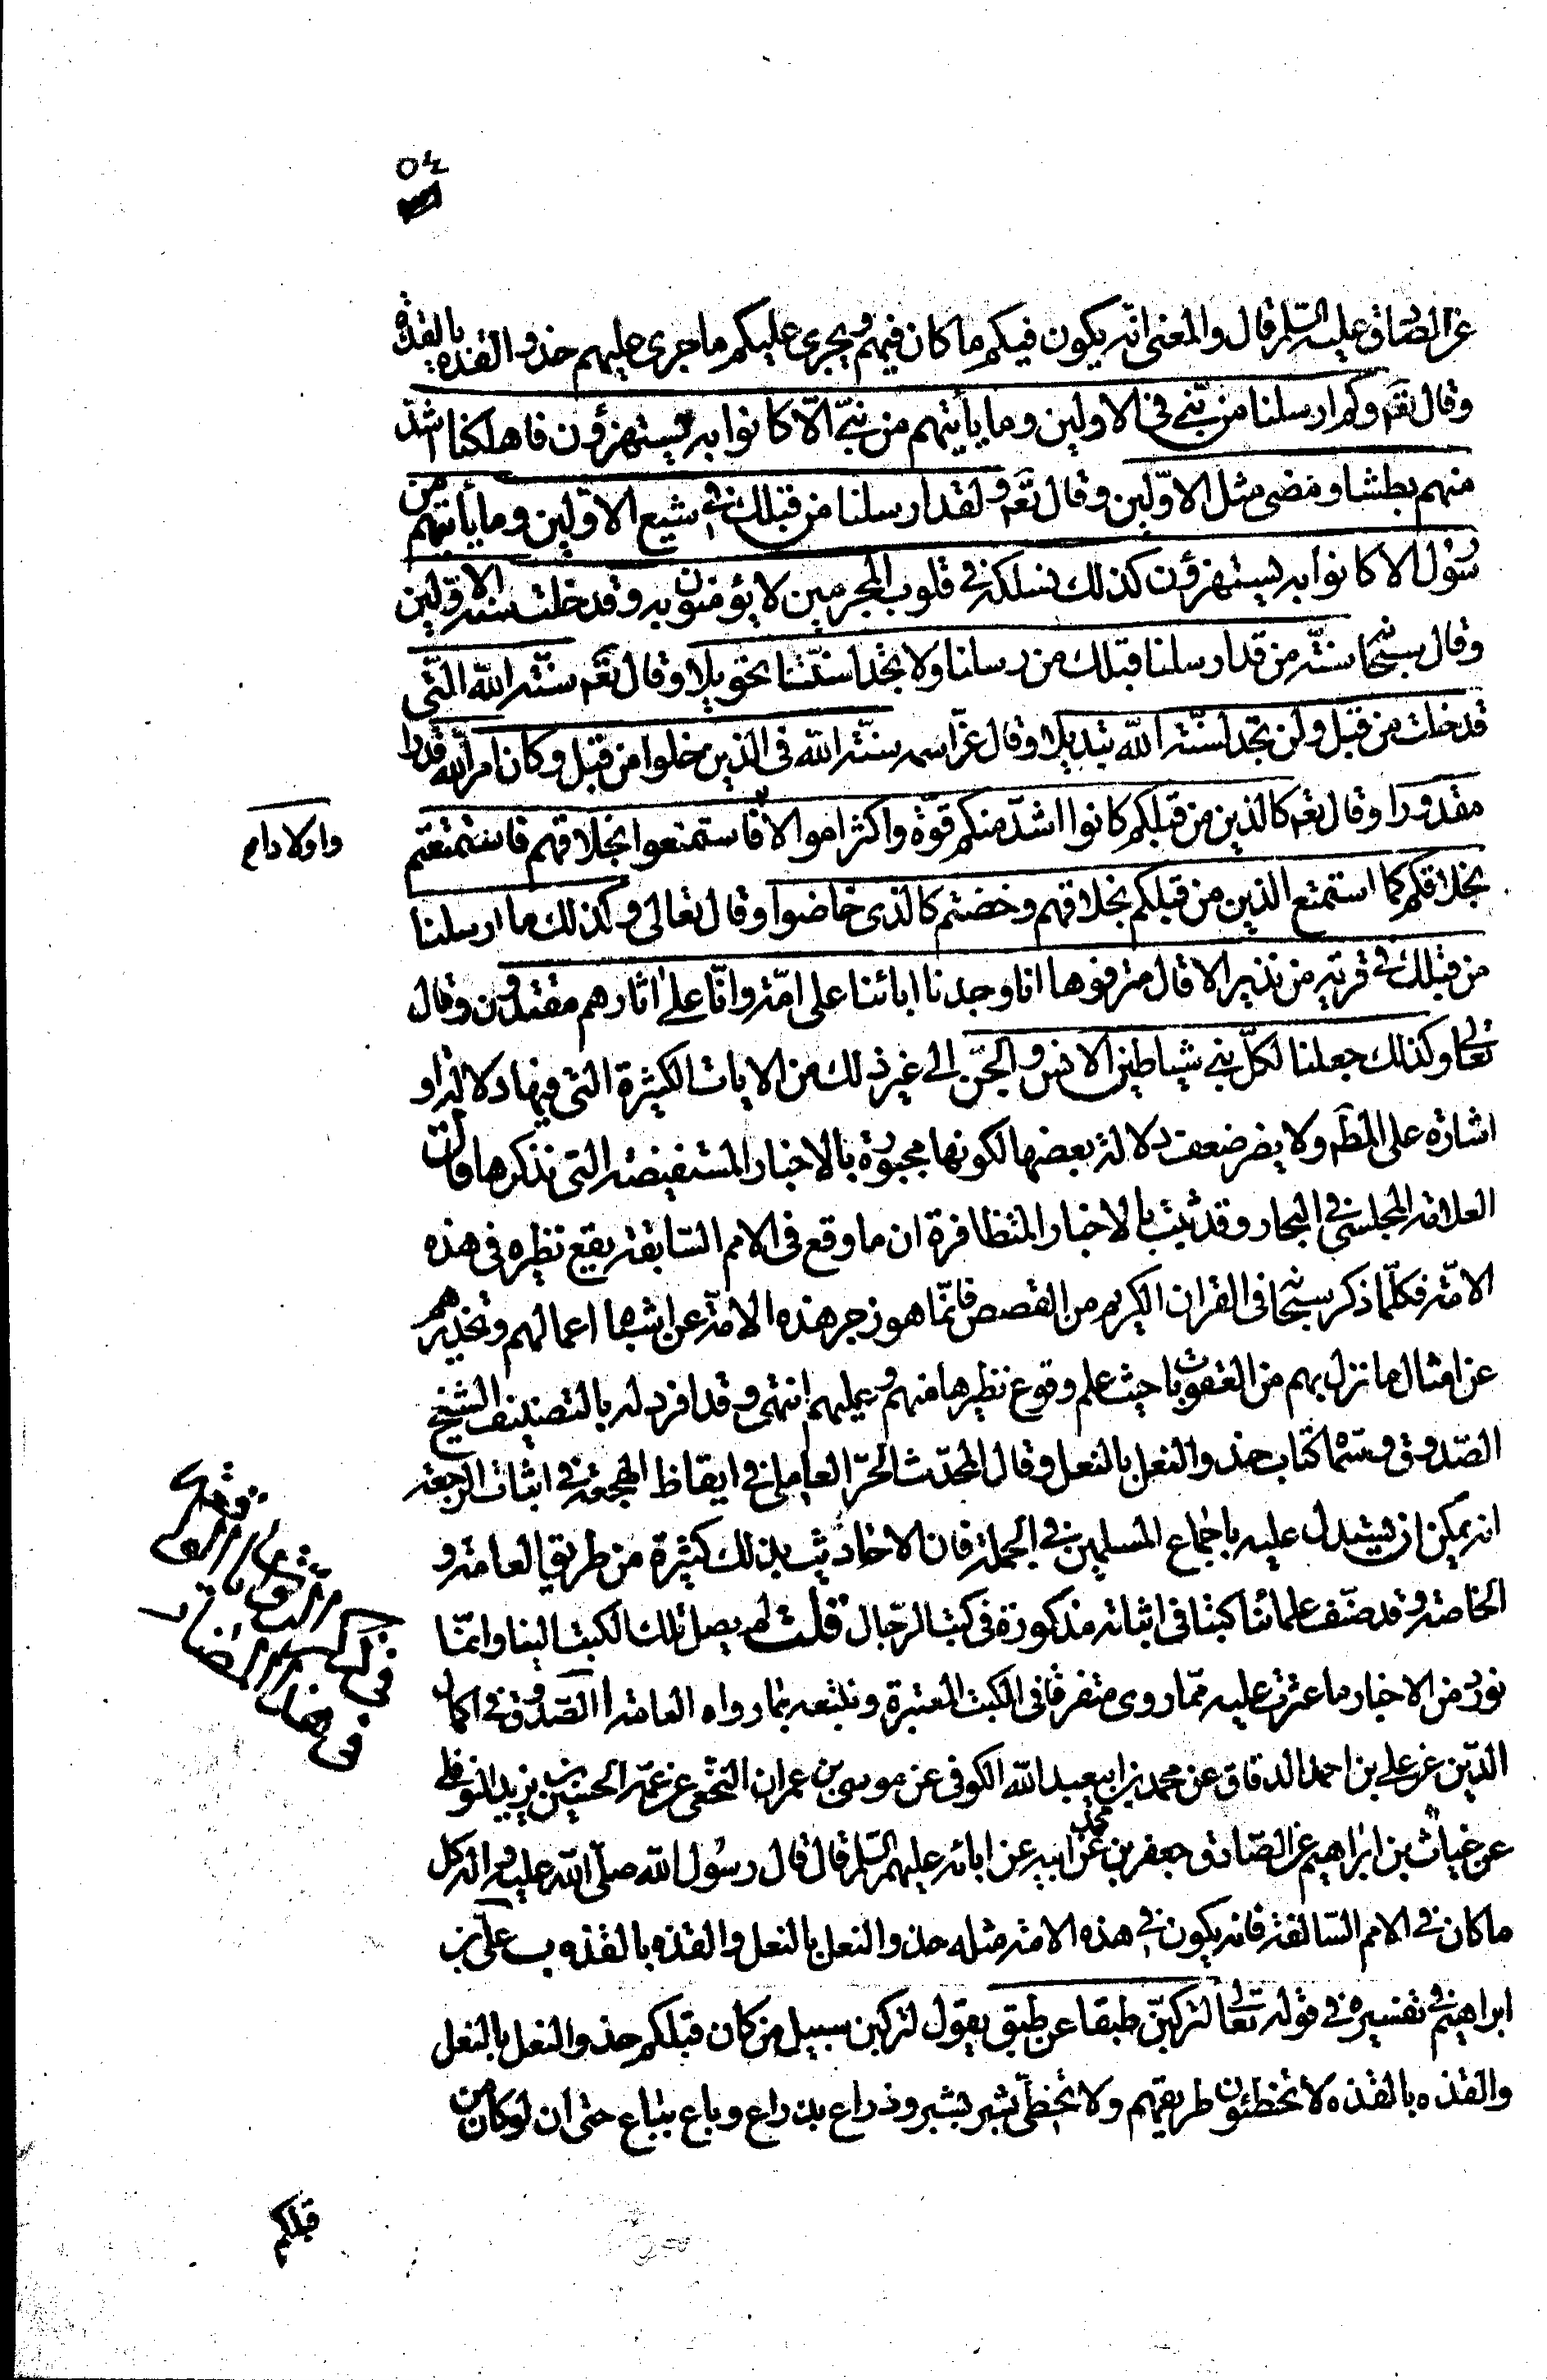 ٥٤
عن الصادق عليه السلم قال والمعنى انه يكون فيكم ما كان فيهم ويجرى عليكم ما جرى عليهم حذو القذه بالقذه
وقال تعه وكم ارسلنا من نبي في الاولين وما يأتيهم من نبيّ الّا كانوا به يستهزؤن فاهلكنا اشدّ
منهم بطشا ومضى مثل الاوّلين وقال تعه ولقد ارسلنا من قبلك في شيع الاوّلين وما يأتيهم من
رسول الا كانوا به يستهزؤن كذلك نسلكه في قلوب المجرمين لا يؤمنون به وقد خلت سنة الاوّلين
وقال سبحا سنّة من قد ارسلنا قبلك من رسلنا ولا تجد لسنّتنا تحويلا وقال تعه سنّة الله الّتى
قد خلت من قبل ولن تجد لسنّة الله تبديلا وقال عزّ اسمه سنّة الله فى الذين خلوا من قبل وكان امر الله قدرا
مقدورا وقال تعه كالذين من قبلكم كانوا اشدّ منكم قوّة واكثر اموالا فاستمتعوا بخلاقهم فاستمتعتم
واولادا م
بخلاقكم كما استمتع الذين من قبلكم بخلاقهم وخضتم كالذى خاضوا وقال تعالى وكذلك ما ارسلنا
من قبلك في قرية من نذير الا قال مترفوها انا وجدنا ابائنا على امّة وانّا على اثارهم مقتدون وقال
تعالى وكذلك جعلنا لكلّ نبي شياطين الانس والجنّ الى غير ذلك من الايات الكثيرة التى فيها دلالة او
اشارة على المط ولا يضر ضعف دلالة بعضها لكونها مجبورة بالاخبار المستفيضة التى نذكرها وقال
العلامة المجلسى في البحار وقد ثبت بالاخبار المتظافرة ان ما وقع فى الامم السّابقة يقع نظيره فى هذه
الامّة فكلّما ذكر سبحا فى القران الكريم من القصص فانّما هو زجر هذه الامّة عن اشباه اعمالهم وتحذيرهم
عن امثال ما نزل بهم من العقوبات حيث علم وقوع نظيرها منهم وعليهم انتهى وقد افرد له بالتصنيف الشيخ
الصّدوق وسمّا كتاب حذو النعل بالنعل وقال المحدّث الحرّ العاملى في ايقاظ الهجعة في اثبات الرجعة
انه يمكن ان يستدل عليه باجماع المسلمين في الجملة فان الاحاديث بذلك كثيرة من طريق العامة و
الخاصة وقد صنّف علمائنا كتبا فى اثباته مذكورة فى كتب الرّجال قلت لم يصل تلك الكتب الينا وانمّا
نورد من الاخبار ما عثرت عليه ممّا روى متفرقا فى الكتب المعتبرة ونتبعه بما رواه العامة ا الصّدوق في اكمال
الدّين عن على بن احمد الدقاق عن محمد بن ابيعبد الله الكوفى عن موسى بن عمران النخعى عن عمّه الحسين بن يزيد النوفلى
عن غياث بن ابراهيم عن الصّادق جعفر بن محمد عن ابيه عن ابائه عليهم السّلم قال قال رسول الله صلّى الله عليه واله كل
ما كان في الامم السّالفة فانه يكون في هذه الامة مثله حذو النعل بالنعل والقذه بالقذه ب علّى بن
ابراهيم في تفسيره في قوله تعالى لتركبنّ طبقا عن طبق يقول لتركبن سبيل من كان قبلكم حذو النعل بالنعل
والقذه بالقذه لا تخطئون طريقهم ولا تخطّى شبر بشبر وذراع بذراع وباع بباع حتى ان لو كان من
قبلكم